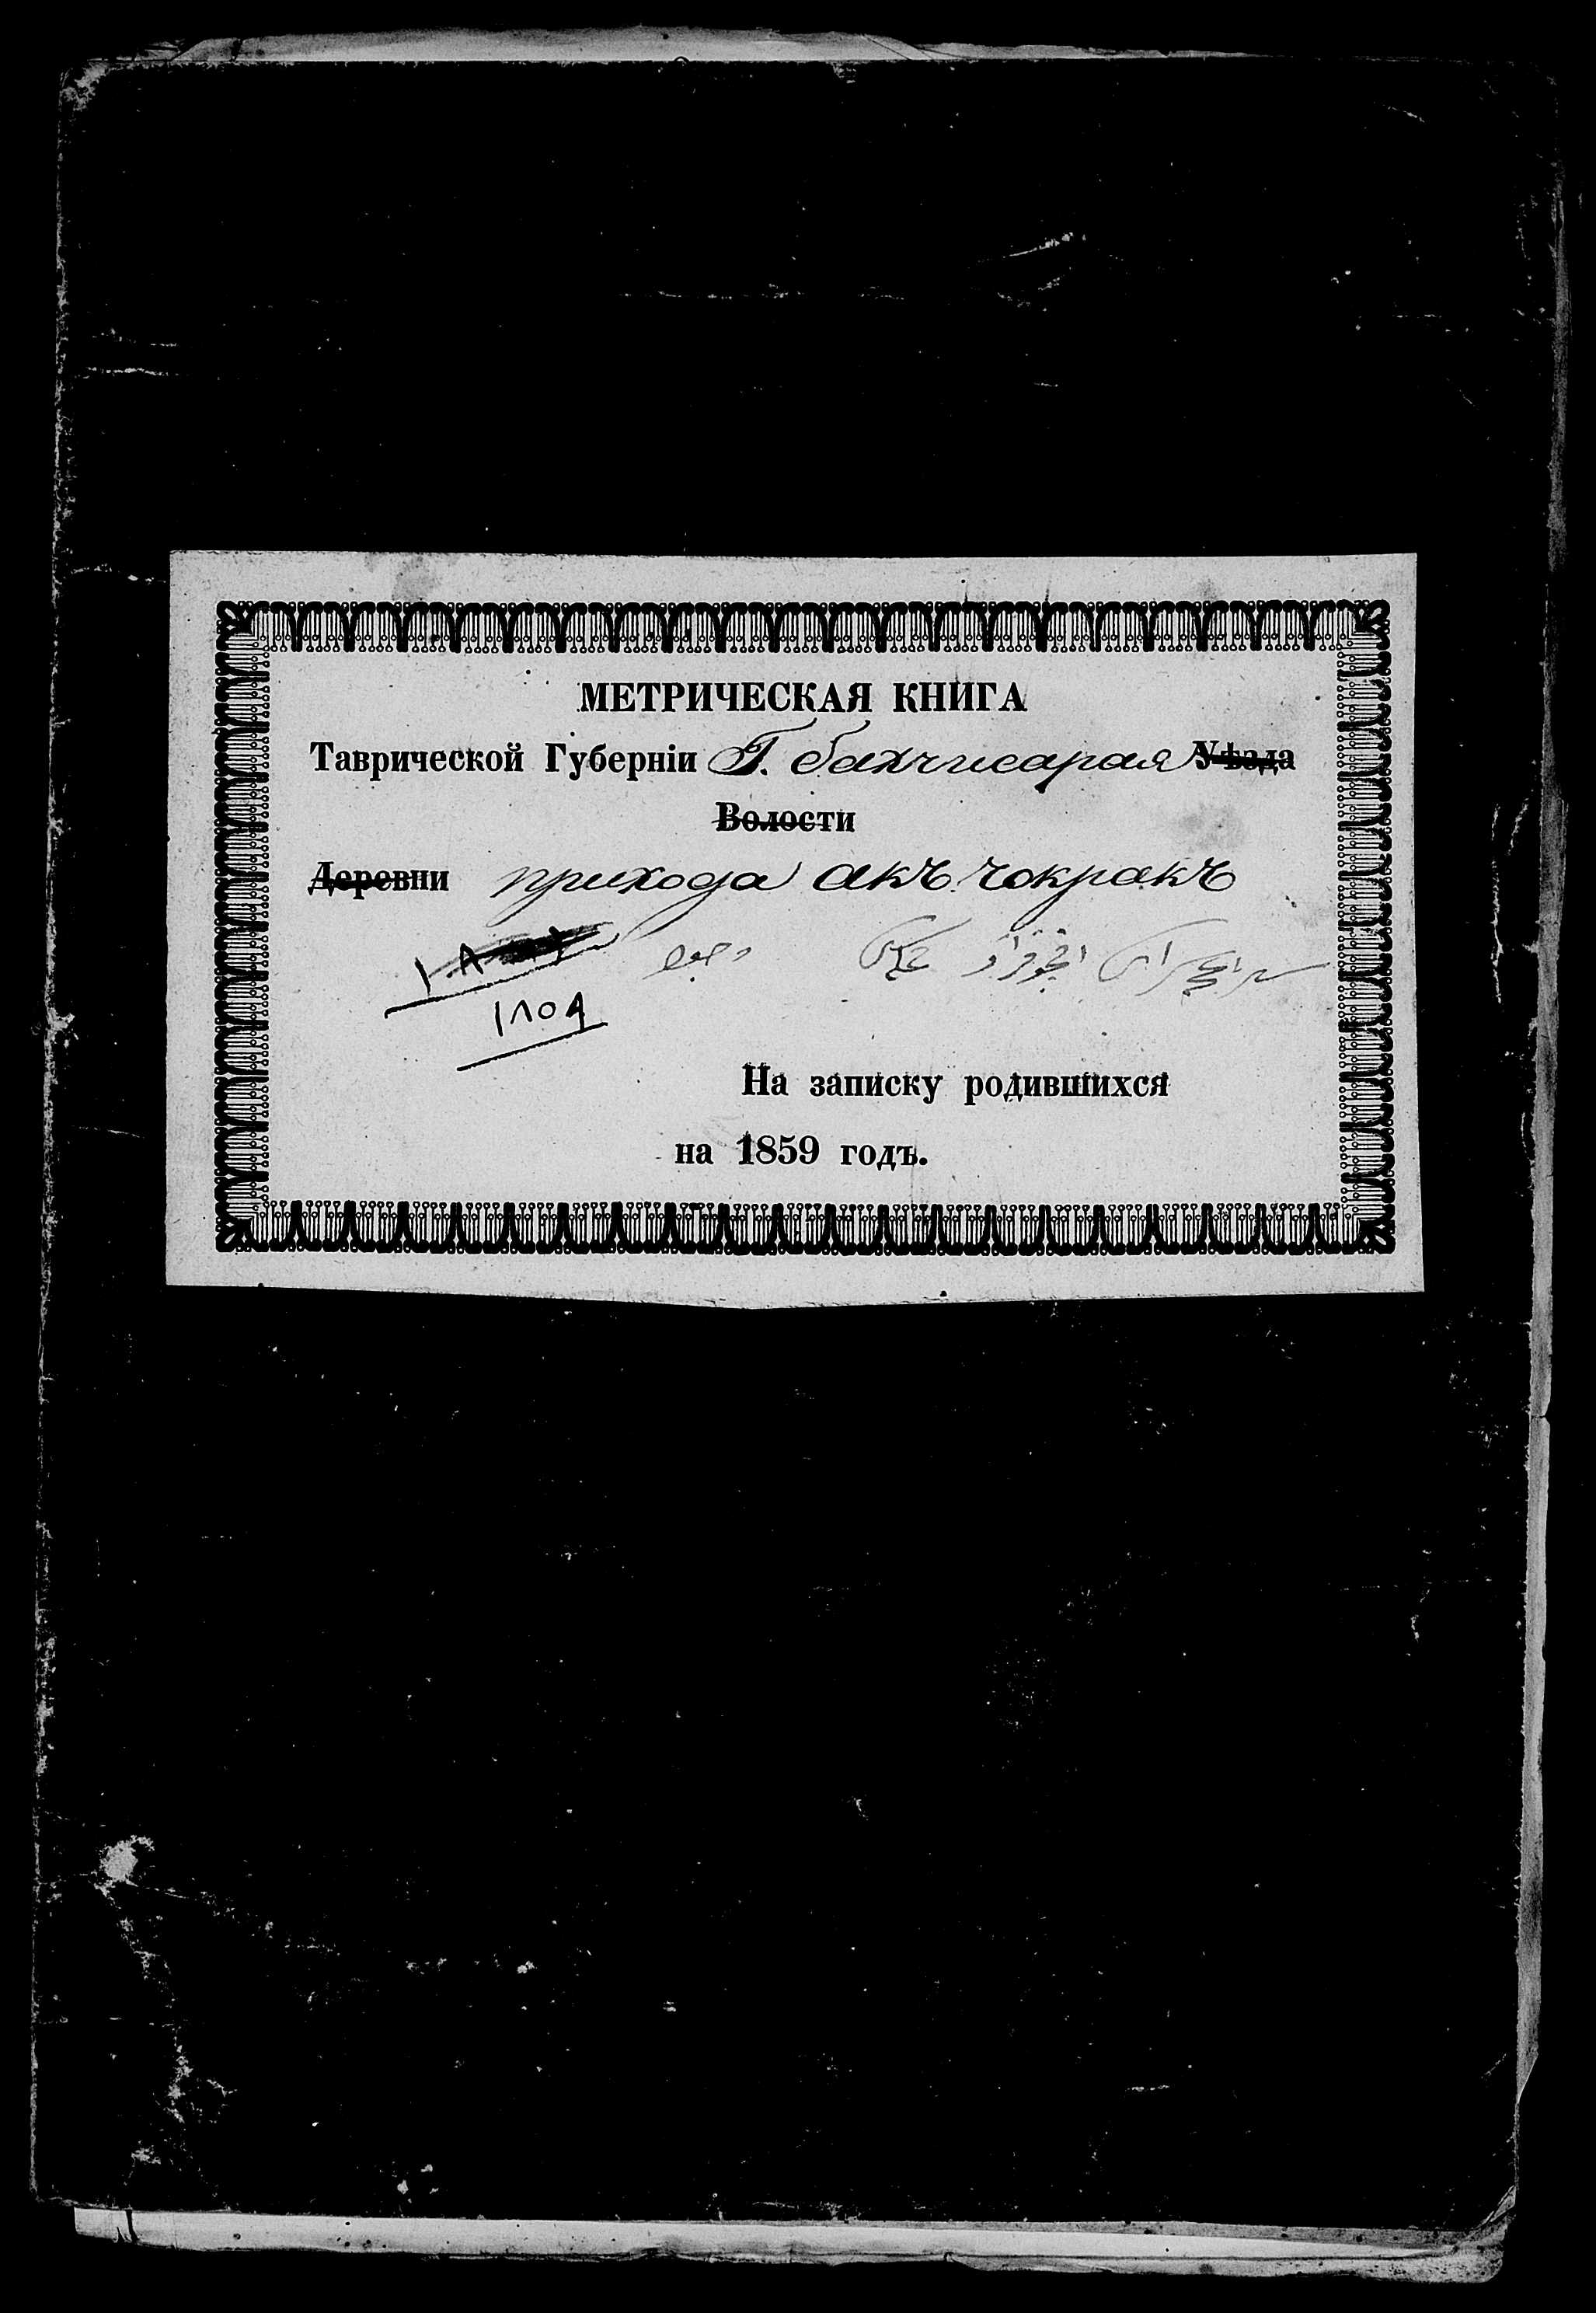 МЕТРИЧЕСКАЯ КНИГА
Таврической Губерніи Г. бахчисарая Уѣзда
Волости
Деревни прихода акъ чокракъ
١٨٥٩
На записку родившихся
на 1859 годъ.